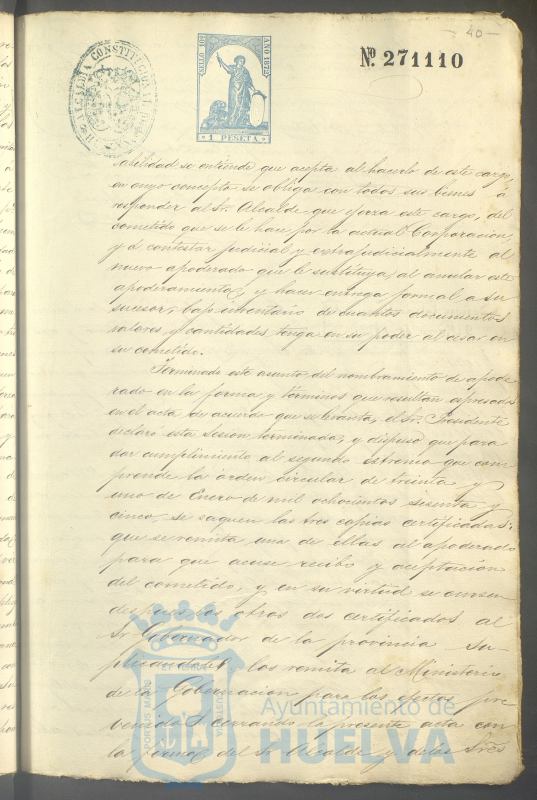 40
Nº 271110
ALCALDIA CONSTITUCIONAL
SELLO 10º
AÑO 1872
1 PESETA
abilidad se entiende que acepta al hacerlo de este cargo,
en cuyo concepto se obliga con todos sus bienes á
responder al Sr. Alcalde que ejerza este cargo, del
cometido que se le hace por la actual Corporacion,
y á contestar judicial y extrajudicialmente al
nuevo apoderado que le sustituya, al anular este
apoderamiento, y hacer entrega formal á su
sucesor, bajo inventario de cuantos documentos,
valores, y cantidades tenga en su poder al cesar en
su cometido.
Terminado este asunto del nombramiento de apode
rado en la forma y términos que resultan espresados
en el acta de acuerdo que se levanta, el Sr. Presidente
declaró esta sesion terminada, y dispuso que para
dar cumplimiento al segundo estremo que com
prende la órden circular de treinta y
uno de Enero de mil ochocientos sesenta y
cinco, se saquen las tres copias certificadas:
que se remita una de ellas al apoderado
para que acuse recibo y aceptacion
del cometido, y en su virtud se cursen
despues los otros dos certificados al
Sr. Gobernador de la provincia su
plicandole los remita al Ministerio
de la Gobernacion para los efectos pre
venidos, cerrando la presente acta con
la firma del Sr. Alcalde y de los Sres
PORTUS MARIS
Ayuntamiento de
HUELVA